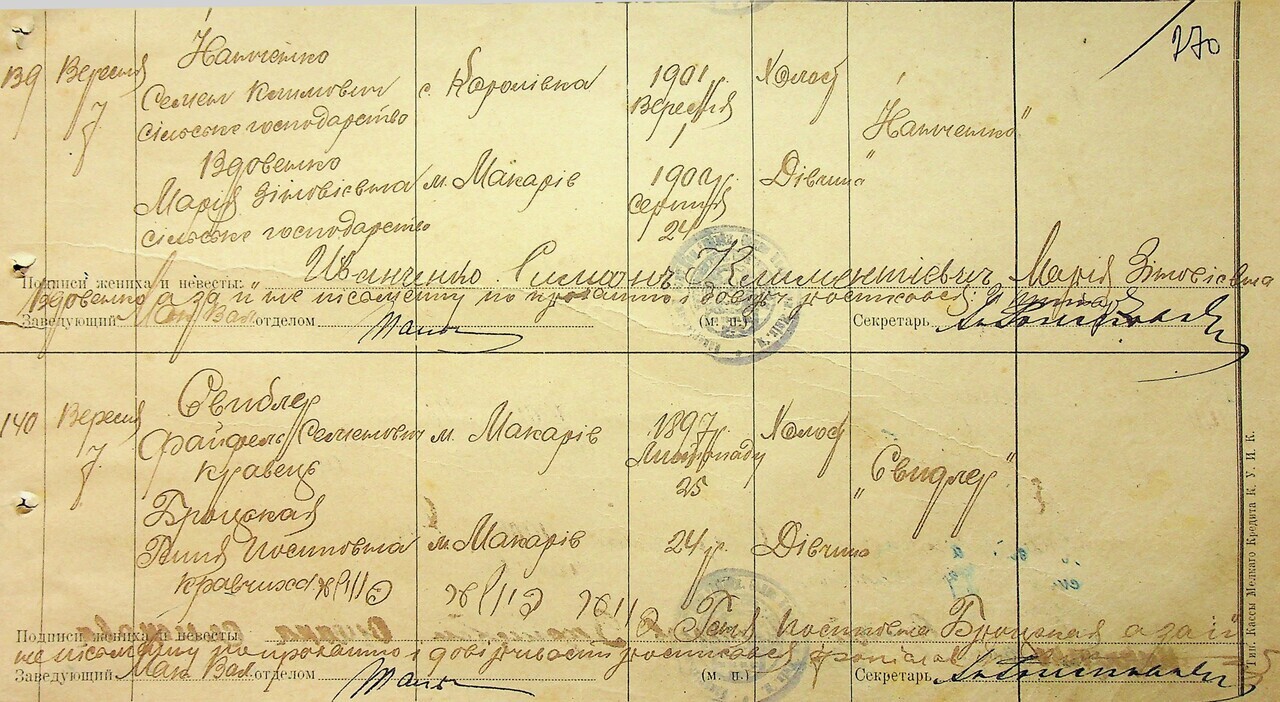 270
139 Вересня 7
Іванченко
Семен Климович
сільське господарство
с. Королівка
1901 р.
Вересня
1
Холост
"Іванченко"
Вдовенко
Марія Зіновієвна
сільське господарство
м. Макарів
1902 р.
серпня
24
Дівчина
Подписи жениха и невесты: Иванченко Симионъ Климентіевич Марія Зіновієвна
Вдовенко а за її не письменну по проханню і довір росписався
Заведующий Мак Вол отделом
(м. п.)
Секретарь
140 Вересня 7
Свидлер
Файфель Семенович
кравець
м. Макарів
1897 р.
Листопаду
25
Холост
"Свидлер"
Броцкая
Геня Иосиповна
кравчиха
м. Макарів
24 р.
Дівчина
Подписи жениха и невесты: Геня Иосиповна Броцкая а за її
не письменну по проханню і довірчивости росписався
Заведующий Мак Вол. отделом
(м. п.)
Секретарь
Тип. Кассы Мелкаго Кредита К. У. И. К.